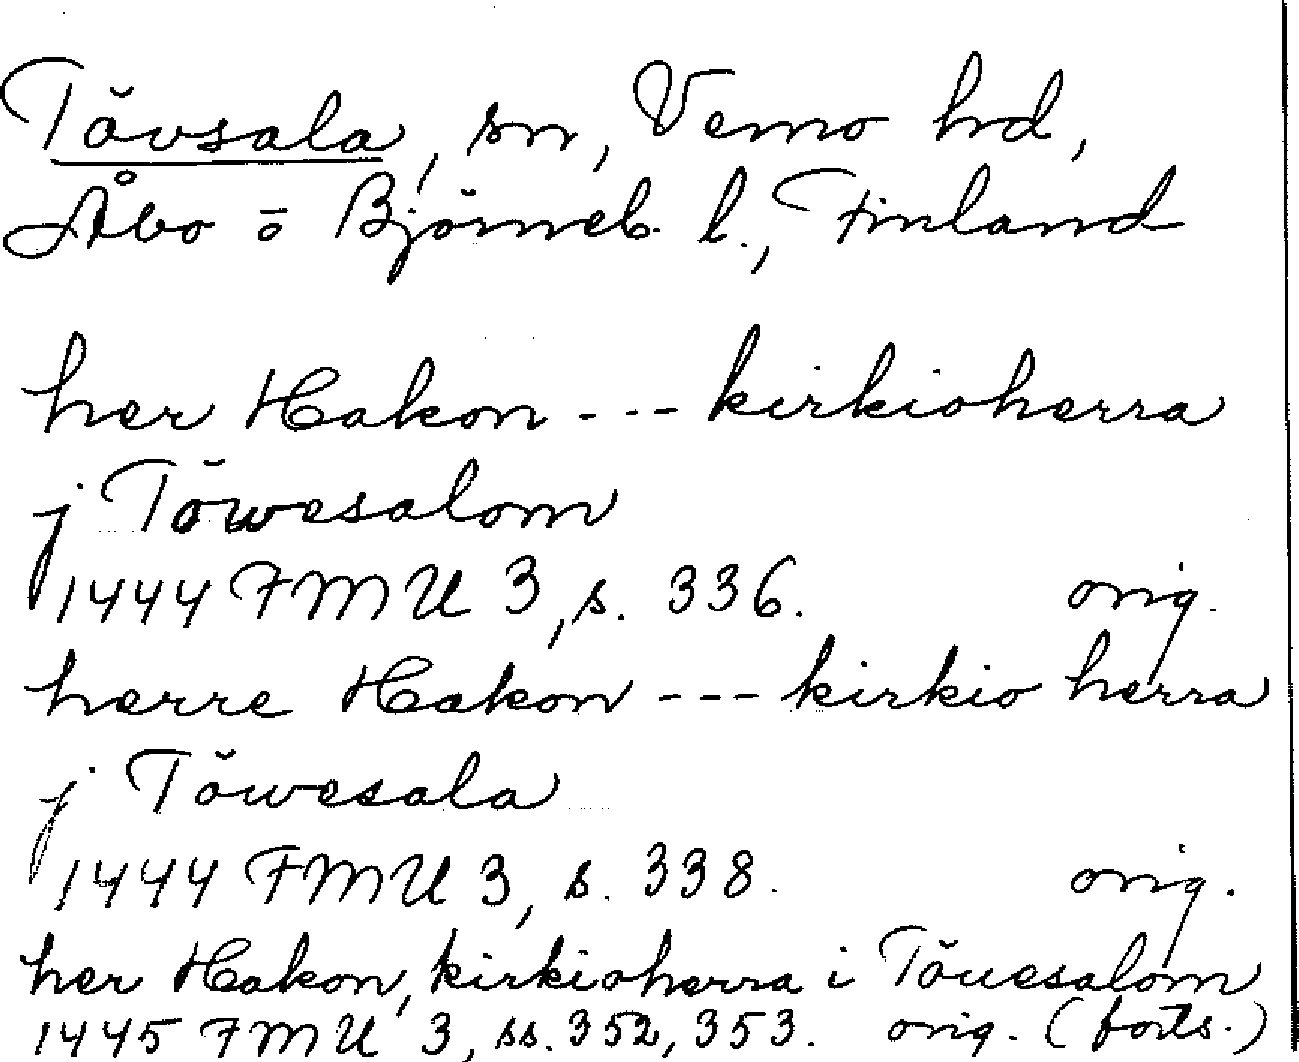 Tövsala, sn, Vemo hd,
Åbo o Björneb. l., Finland
her Hakon --- kirkioherra
j Töwesalom
1444 FMU 3, s. 336. orig.
herre Hakon --- kirkio herra
j Töwesala
1444 FMU 3, s. 338. orig.
her Hakon, kirkioherra i Töuesalom
1445 FMU 3, ss. 352, 353. orig. (forts.)